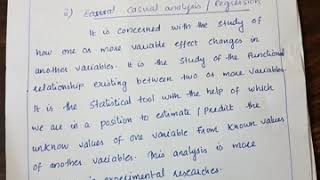 ii) Casual analysis / Regression
It is concerned with the study of
how one or more variable effect changes in
another variables. It is the study of the functional
relationship existing between two or more variables
It is the statistical tool with the help of which
we are in a position to estimate / Predict the
unknow values of one variable from known values
of another variables. This analysis is more
in experimental researches.